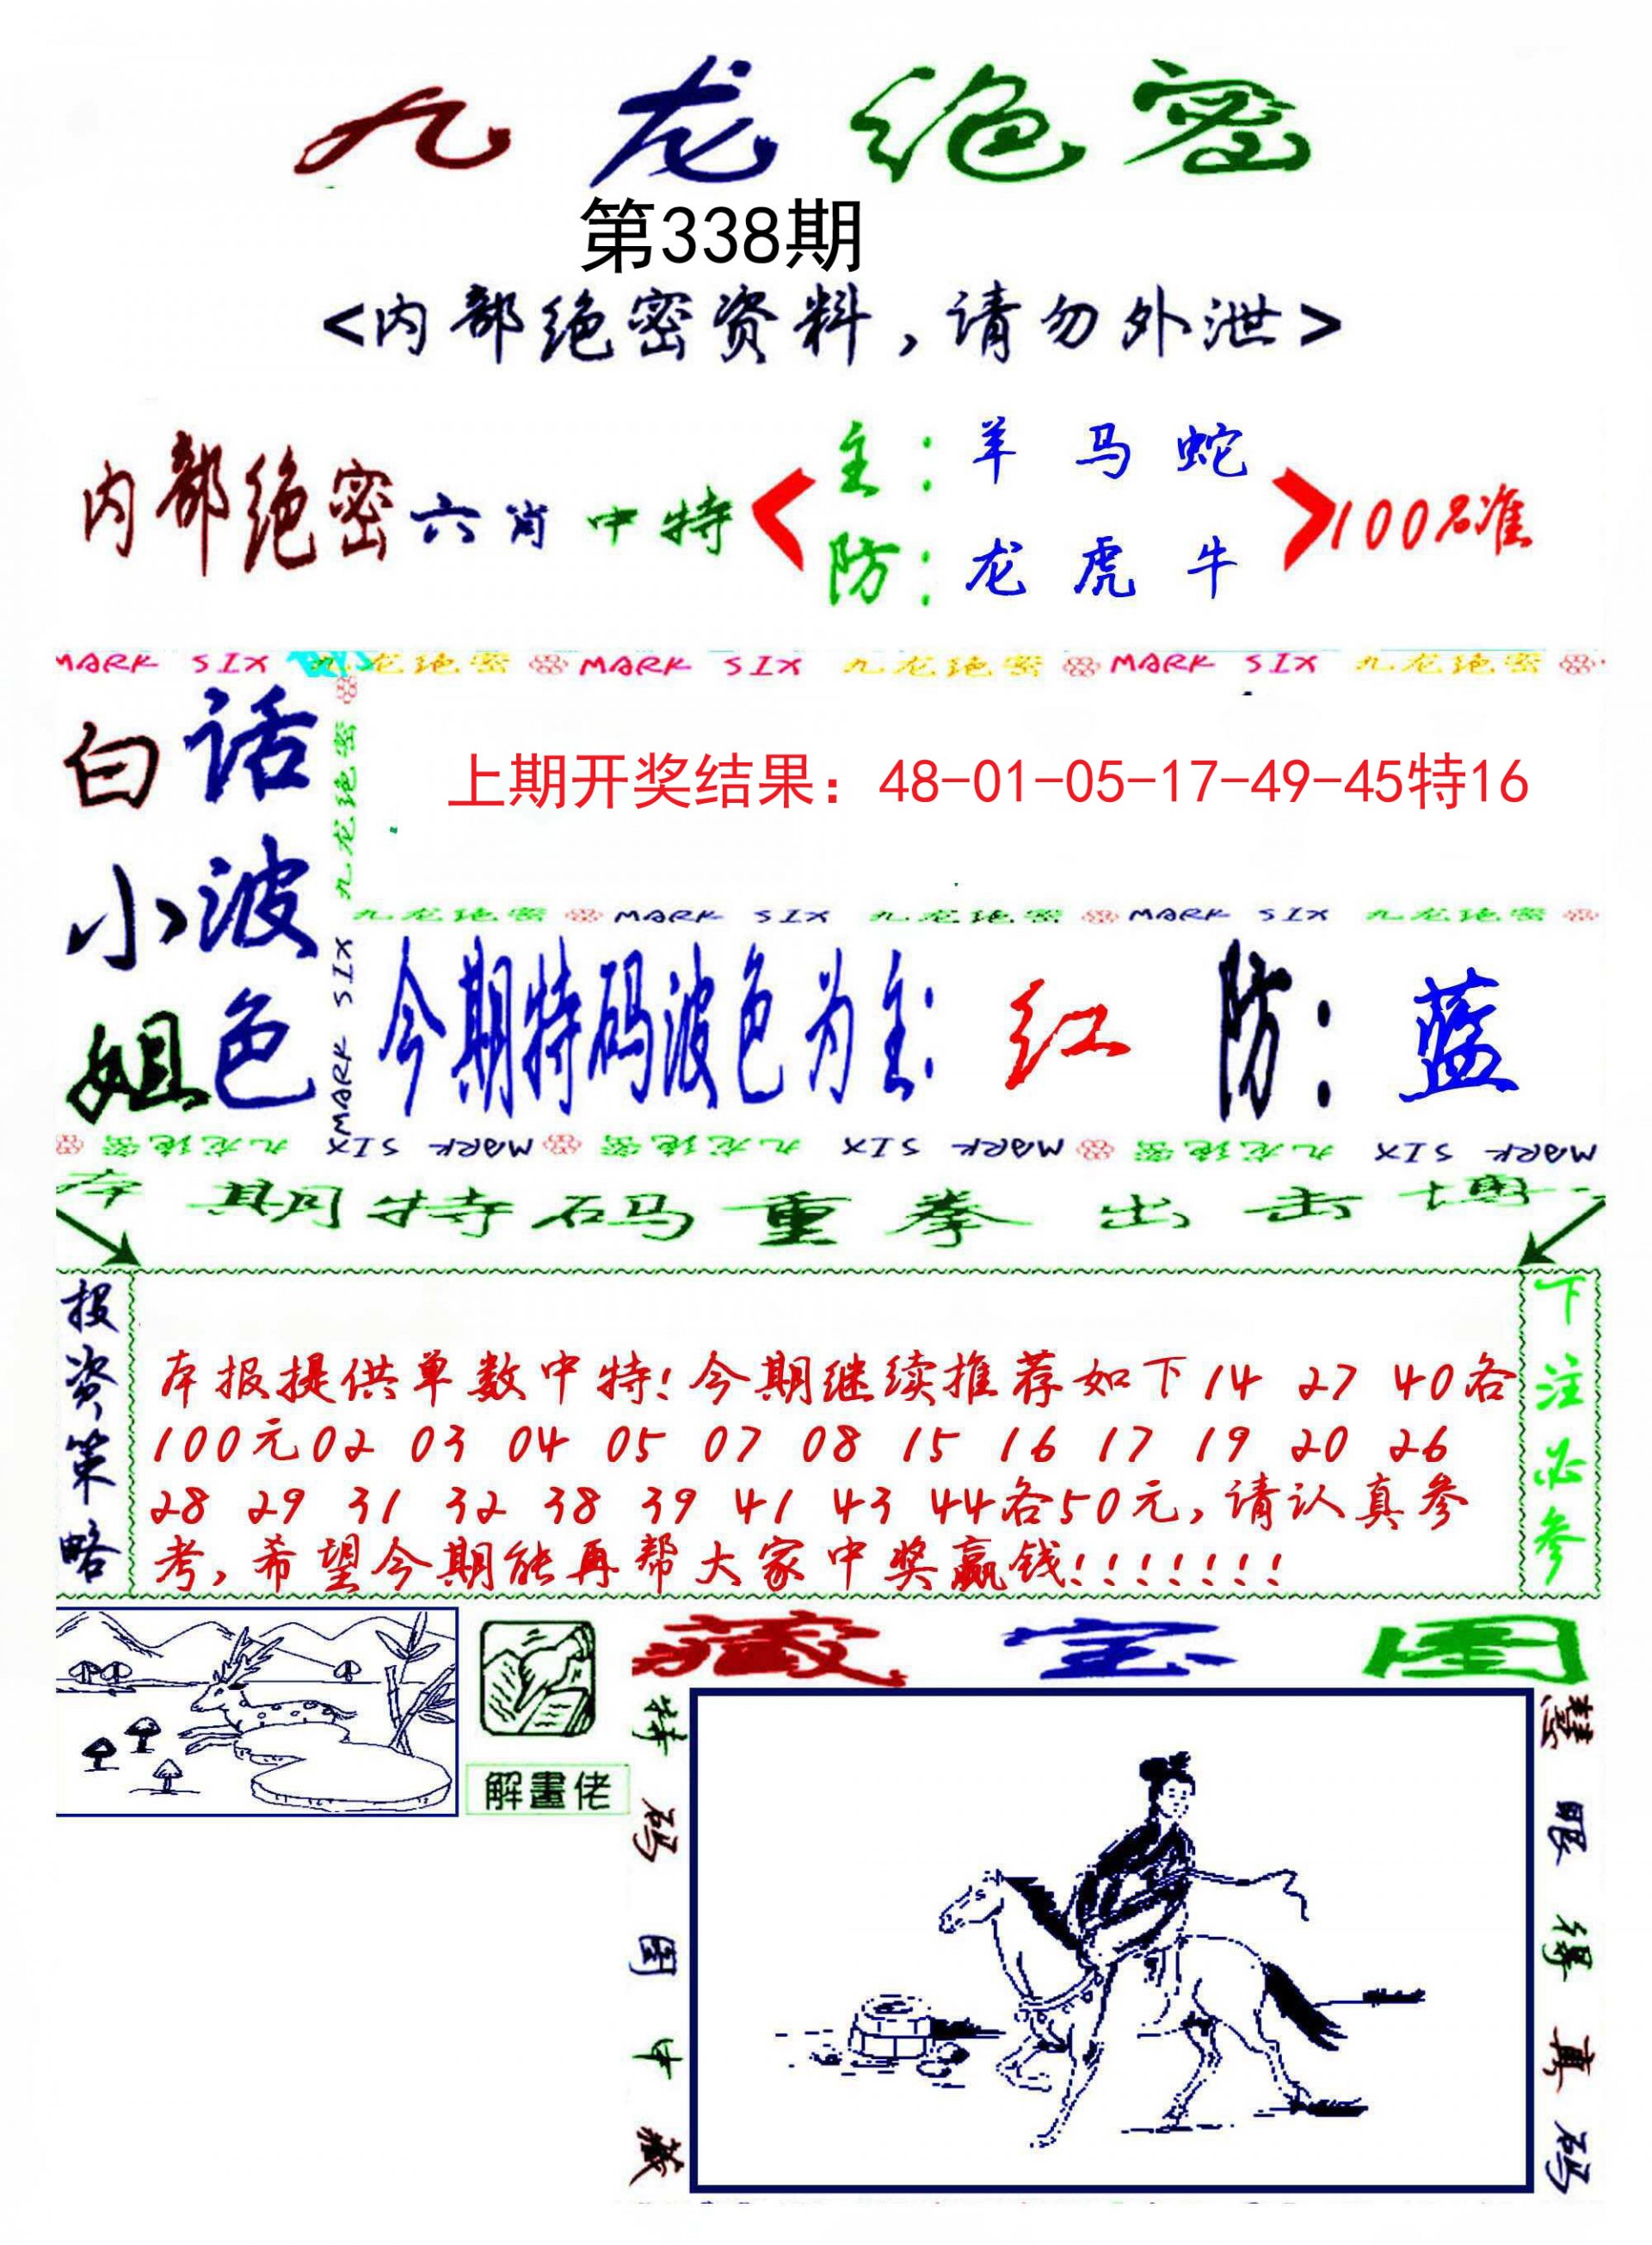 九龙绝密
第338期
<内部绝密资料,请勿外泄>
内部绝密六肖中特
主: 羊 马 蛇
防: 龙 虎 牛
100%准
MARK SIX 九龙绝密 MARK SIX 九龙绝密 MARK SIX 九龙绝密
白小姐
话波色
九龙绝密 MARK SIX
上期开奖结果：48-01-05-17-49-45特16
九龙绝密 MARK SIX 九龙绝密 MARK SIX 九龙绝密
今期特码波色为主: 红 防: 蓝
MARK SIX 九龙绝密 MARK SIX 九龙绝密 MARK SIX 九龙绝密
本期特码重拳出击博
投资策略
本报提供单数中特!今期继续推荐如下14 27 40各
100元02 03 04 05 07 08 15 16 17 19 20 26
28 29 31 32 38 39 41 43 44各50元,请认真参
考,希望今期能再帮大家中奖赢钱!!!!!!!
下注必参
解畫佬
藏宝图
特码图中藏
慧眼得真码